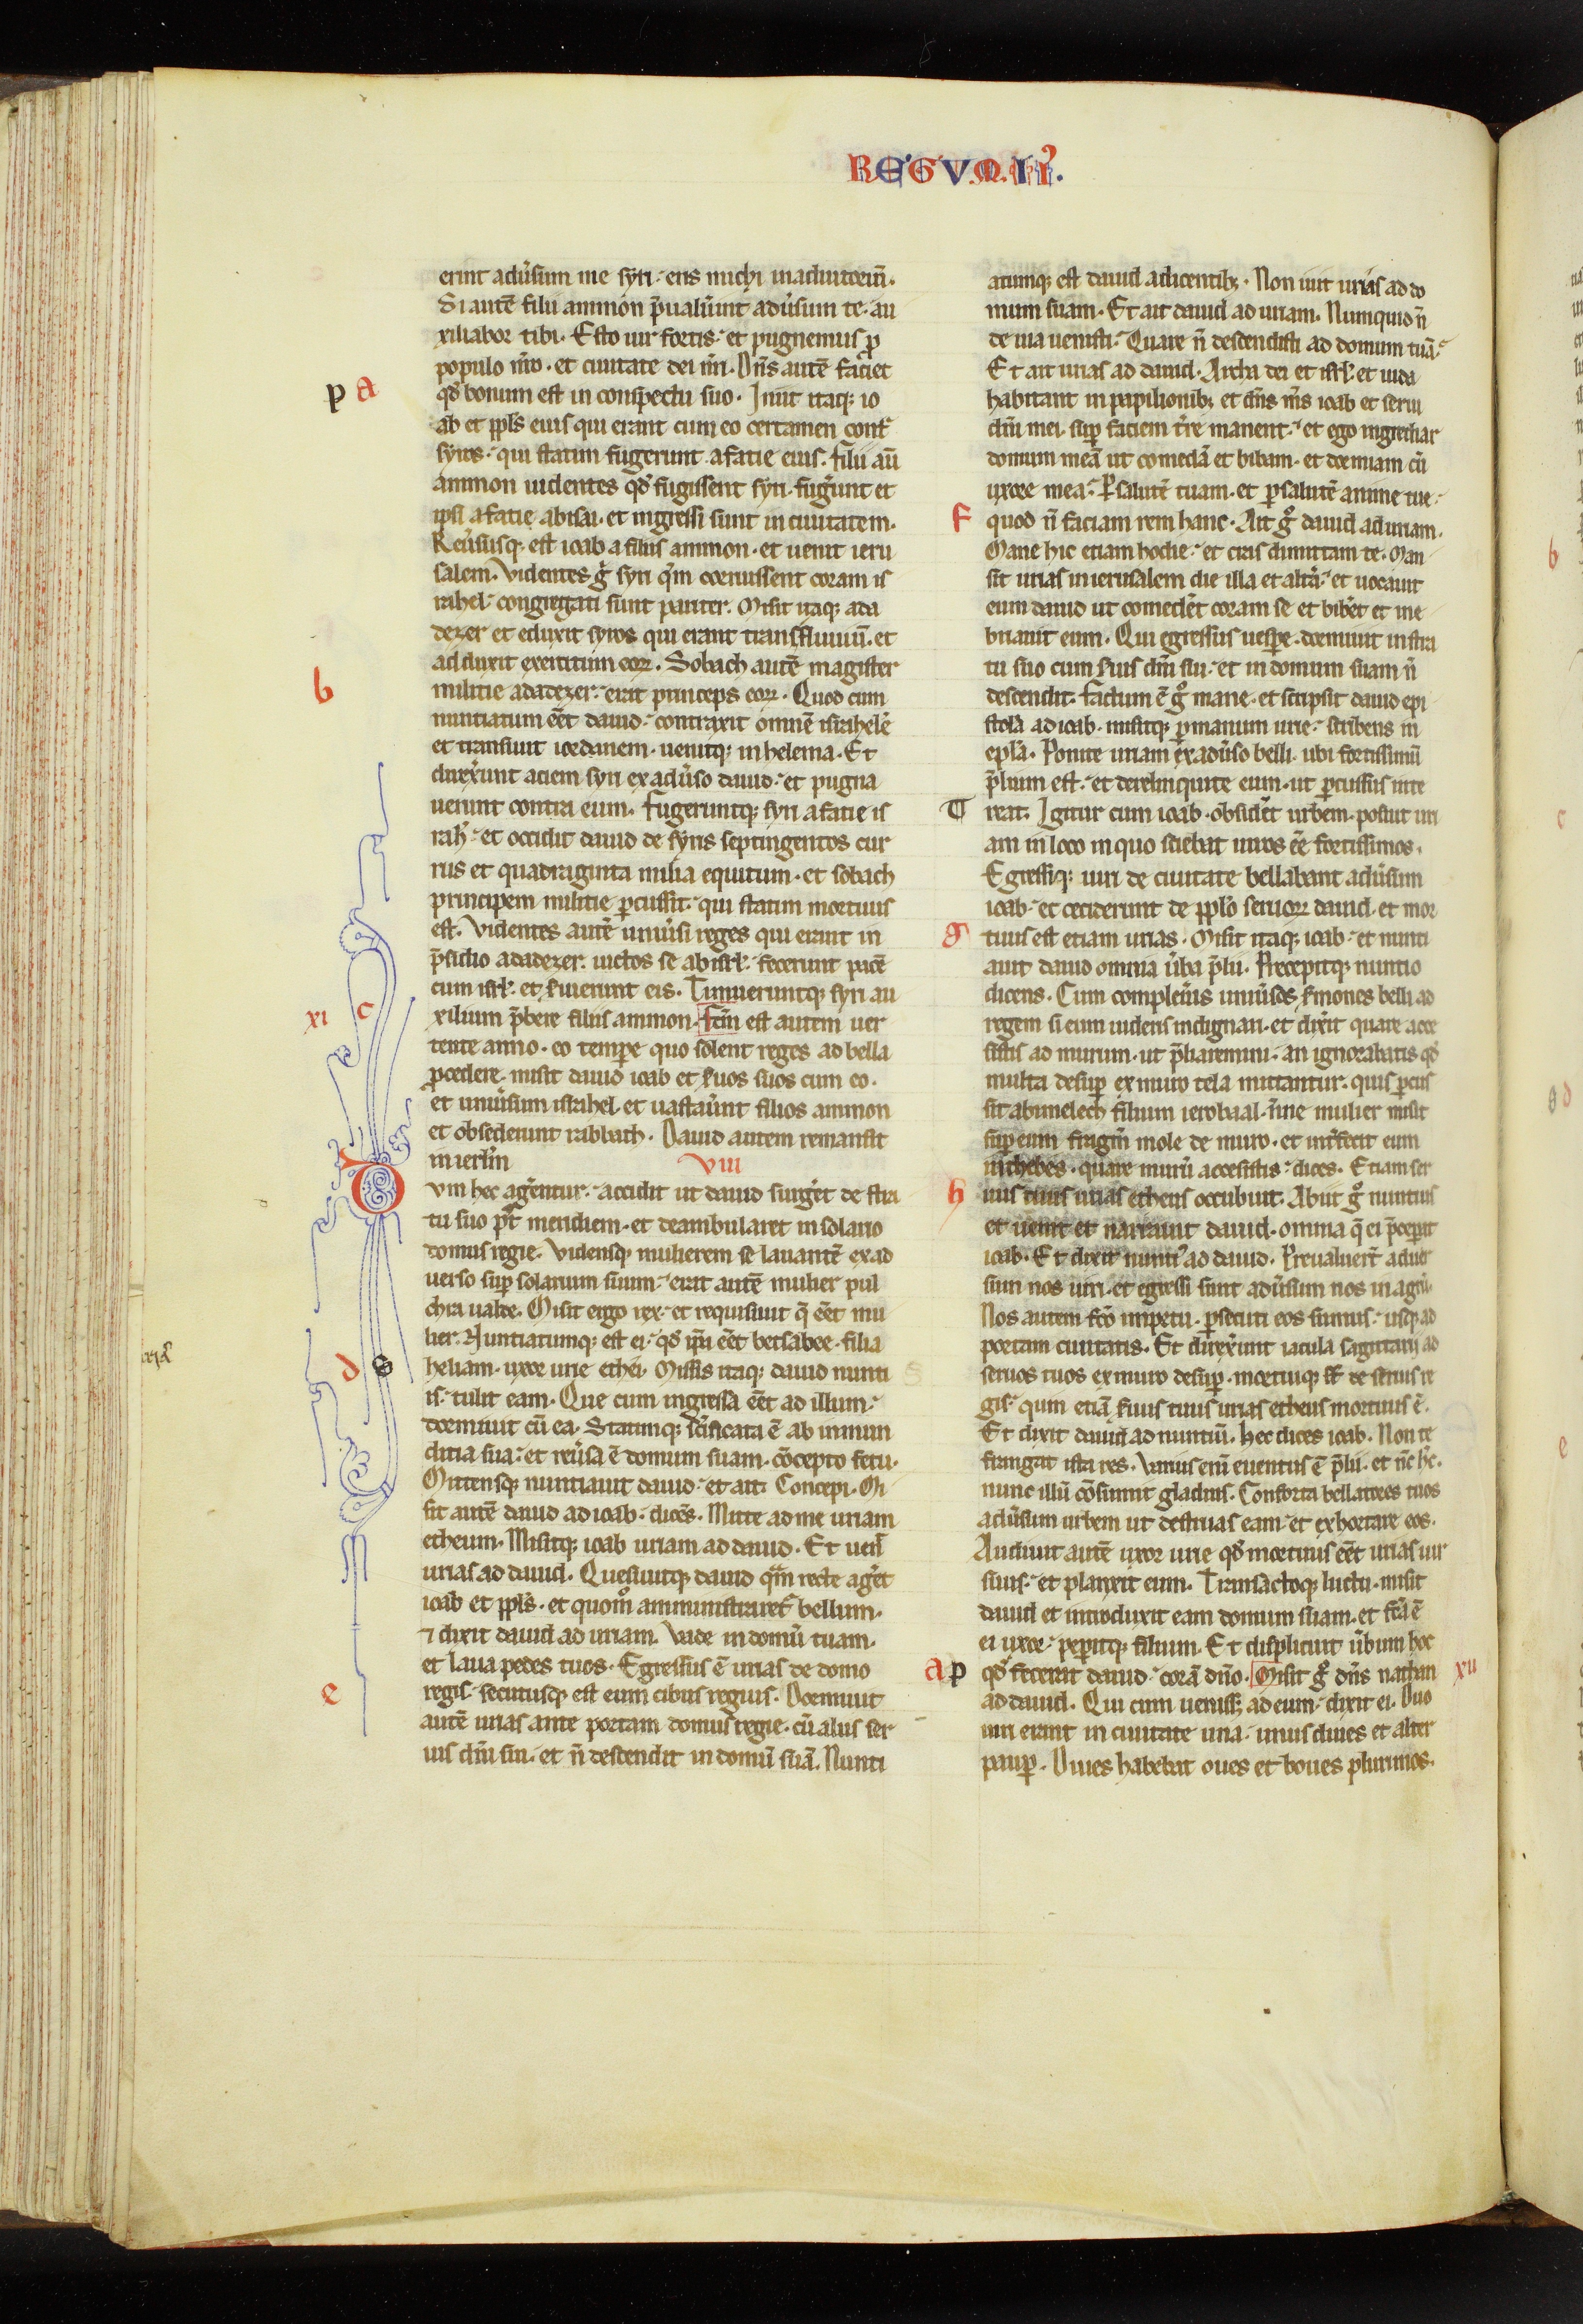 REGVM. II.
erint aduˢsum me syri. eris michi inadiutoriū.
Si autē filii ammon p̄ualuˢint aduˢsum te. au
xiliabor tibi. Esto uir fortis. et pugnemus ꝓ
populo nr̄o. et ciuitate dei nr̄i. Dn̄s autē faciet
p a
qd̓ bonum est in conspectu suo. Iniit itaqꝫ io
ab et ppl̓s eius qui erant cum eo certamen contˢ
syros. qui statim fugerunt a facie eius. filii aū
ammon uidentes qd̓ fugissent syri. fugˢunt et
ipsi a facie abisai. et ingressi sunt in ciuitatem.
Reuˢsusqꝫ est ioab a filiis ammon. et uenit ieru
salem. Videntes gͦ syri qm̄ corruissent coram is
rahel. congregati sunt pariter. Misit itaqꝫ ada
dezer et eduxit syros qui erant trans fluuiū. et
adduxit exercitum eoꝝ. Sobach autē magister
b
militie adadezer. erat princeps eoꝝ. Quod cum
nuntiatum eēt dauid. contraxit omnē israhelē
et transiuit iordanem. uenitqꝫ in helema. Et
direxˢunt aciem syri ex aduˢso dauid. et pugna
uerunt contra eum. Fugeruntqꝫ syri a facie is
rah̓l. et occidit dauid de syris septingentos cur
rus et quadraginta milia equitum. et sobach
principem militie ꝑcussit. qui statim mortuus
est. Videntes autē uniuˢsi reges qui erant in
p̄sidio adadezer. uictos se ab isrł. fecerunt pacē
cum isrł. et s̓uierunt eis. Timueruntqꝫ syri au
xi c
xilium p̄bere filiis ammon. Fc̄m est autem uer
tente anno. eo tempore quo solent reges ad bella
ꝓcedere. misit dauid ioab et s̓uos suos cum eo.
et uniuˢsum israhel. et uastauˢunt filios ammon
et obsederunt rabbath. Dauid autem remansit
in ierl̓m
VIII
Dum hec agˢentur. accidit ut dauid surgˢet de stra
tu suo p̓t meridiem. et deambularet in solario
domus regie. Vidensqꝫ mulierem se lauantē ex ad
uerso suꝑ solarium suum. erat autē mulier pul
chra ualde. Misit ergo rex. et requisiuit q̄ eēt mu
lier. Nuntiatumqꝫ est ei. qd̓ ip̄a eēt betsabee. filia
d S
heliam. uxor urie ethei. Missis itaqꝫ dauid nunti
is. tulit eam. Que cum ingressa eēt ad illum.
dormiuit cū ea. Statimqꝫ sc̄ificata ē ab immun
ditia sua. et reuˢsa ē domum suam. cōcepto fetu.
Mittensqꝫ nuntiauit dauid. et ait. Concepi. Mi
sit autē dauid ad ioab. dicēs. Mitte ad me uriam
etheum. Misitqꝫ ioab uriam ad dauid. Et uenˢ
urias ad dauid. Quesiuitqꝫ dauid qm̄ recte agˢet
ioab et ppl̓s. et quom̊ amministraretˢ bellum.
⁊ dixit dauid ad uriam. Vade in domū tuam.
et laua pedes tuos. Egressus ē urias de domo
e
regis. secutusqꝫ est eum cibus regius. Dormiuit
autē urias ante portam domus regie. cū aliis ser
uis dn̄i sui. et n̄ descendit in domū suā. Nunti
atumqꝫ est dauid a dicentibꝫ. Non iuit urias ad do
mum suam. Et ait dauid ad uriam. Numquid n̄
de uia uenisti. Quare n̄ descendisti ad domum tuā.
Et ait urias ad dauid. Archa dei et isrł. et iuda
habitant in papilionibꝫ et dn̄s m̄s ioab et serui
dn̄i mei. suꝑ faciem tˢre manent. et ego ingrediar
domum meā ut comedā et bibam. et dormiam cū
uxore mea. ꝑ salutē tuam. et ꝑ salutē anime tue.
f
quod n̄ faciam rem hanc. Ait gͦ dauid ad uriam.
Mane hic etiam hodie. et cras dimittam te. Man
sit urias in ierusalem die illa et altˢa. et uocauit
eum dauid ut comedˢet coram se et bibˢet et ine
briauit eum. Qui egressus uespˢe. dormiuit in stra
tu suo cum s̓uis dn̄i sui. et in domum suam n̄
descendit. Factum ē gͦ mane. et scripsit dauid epi
stolā ad ioab. misitqꝫ ꝑ manum urie. scribens in
epl̓a. Ponite uriam ex aduˢso belli. ubi fortissimū
p̄lium est. et derelinquite eum. ut ꝑcussus inte
T
reat. Igitur cum ioab. obsidˢet urbem. posuit uri
am in loco in quo sciebat uiros eē fortissimos.
Egressiqꝫ uiri de ciuitate bellabant aduˢsum
ioab. et ceciderunt de ppl̓o seruoꝝ dauid. et mor
g
tuus est etiam urias. Misit itaqꝫ ioab. et nunti
auit dauid omnia uˢba p̄lii. Precepitqꝫ nuntio
dicens. Cum compleuˢis uniuˢsos s̓mones belli ad
regem si eum uideris indignari. et dixˢit quare acce
ssistis ad murum. ut p̄liaremini. an ignorabatis qd̓
multa desuꝑ ex muro tela mittantur. quis ꝑcus
sit abimelech filium ierobaal. n̄ne mulier misit
suꝑ eum fragm̄ mole de muro. et intˢfecit eum
in thebes. quare murū accessistis. dices. Etiam ser
h
uus tuus urias etheus occubuit. Abiit gͦ nuntius
et uenit et narrauit dauid. omnia q̄ ei p̄cepˢat
ioab. Et dixit nunti᾽ ad dauid. Preualuerˢt aduer
sum nos uiri. et egressi sunt aduˢsum nos in agrū.
Nos autem fc̄o impetu. ꝑsecuti eos sumus. usqꝫ ad
portam ciuitatis. Et direxˢunt iacula sagittarij ad
seruos tuos ex muro desuꝑ. mortuiqꝫ st̄ de seruis re
gis. quin etiā s̓uus tuus urias etheus mortuus ē.
Et dixit dauid ad nuntiū. Hec dices ioab. Non te
frangat ista res. Varius enī euentus ē p̄lii. et n̄c h̓c.
nunc illū cōsumit gladius. Conforta bellatores tuos
aduˢsum urbem ut destruas eam. et exhortare eos.
Audiuit autē uxor urie qd̓ mortuus eēt urias uir
suus. et planxit eum. Transactoqꝫ luctu. misit
dauid et introduxit eam domum suam. et fc̄a ē
ei uxor. pepˢitqꝫ filium. Et displicuit uˢbum hoc
a p
qd̓ fecerat dauid. corā dn̄o. Misit gͦ dn̄s nathan
xii
ad dauid. Qui cum uenissꝫ ad eum. dixit ei. Duo
uiri erant in ciuitate una. unus diues et alter
pauꝑ. Diues habebat oues et boues plurimos.